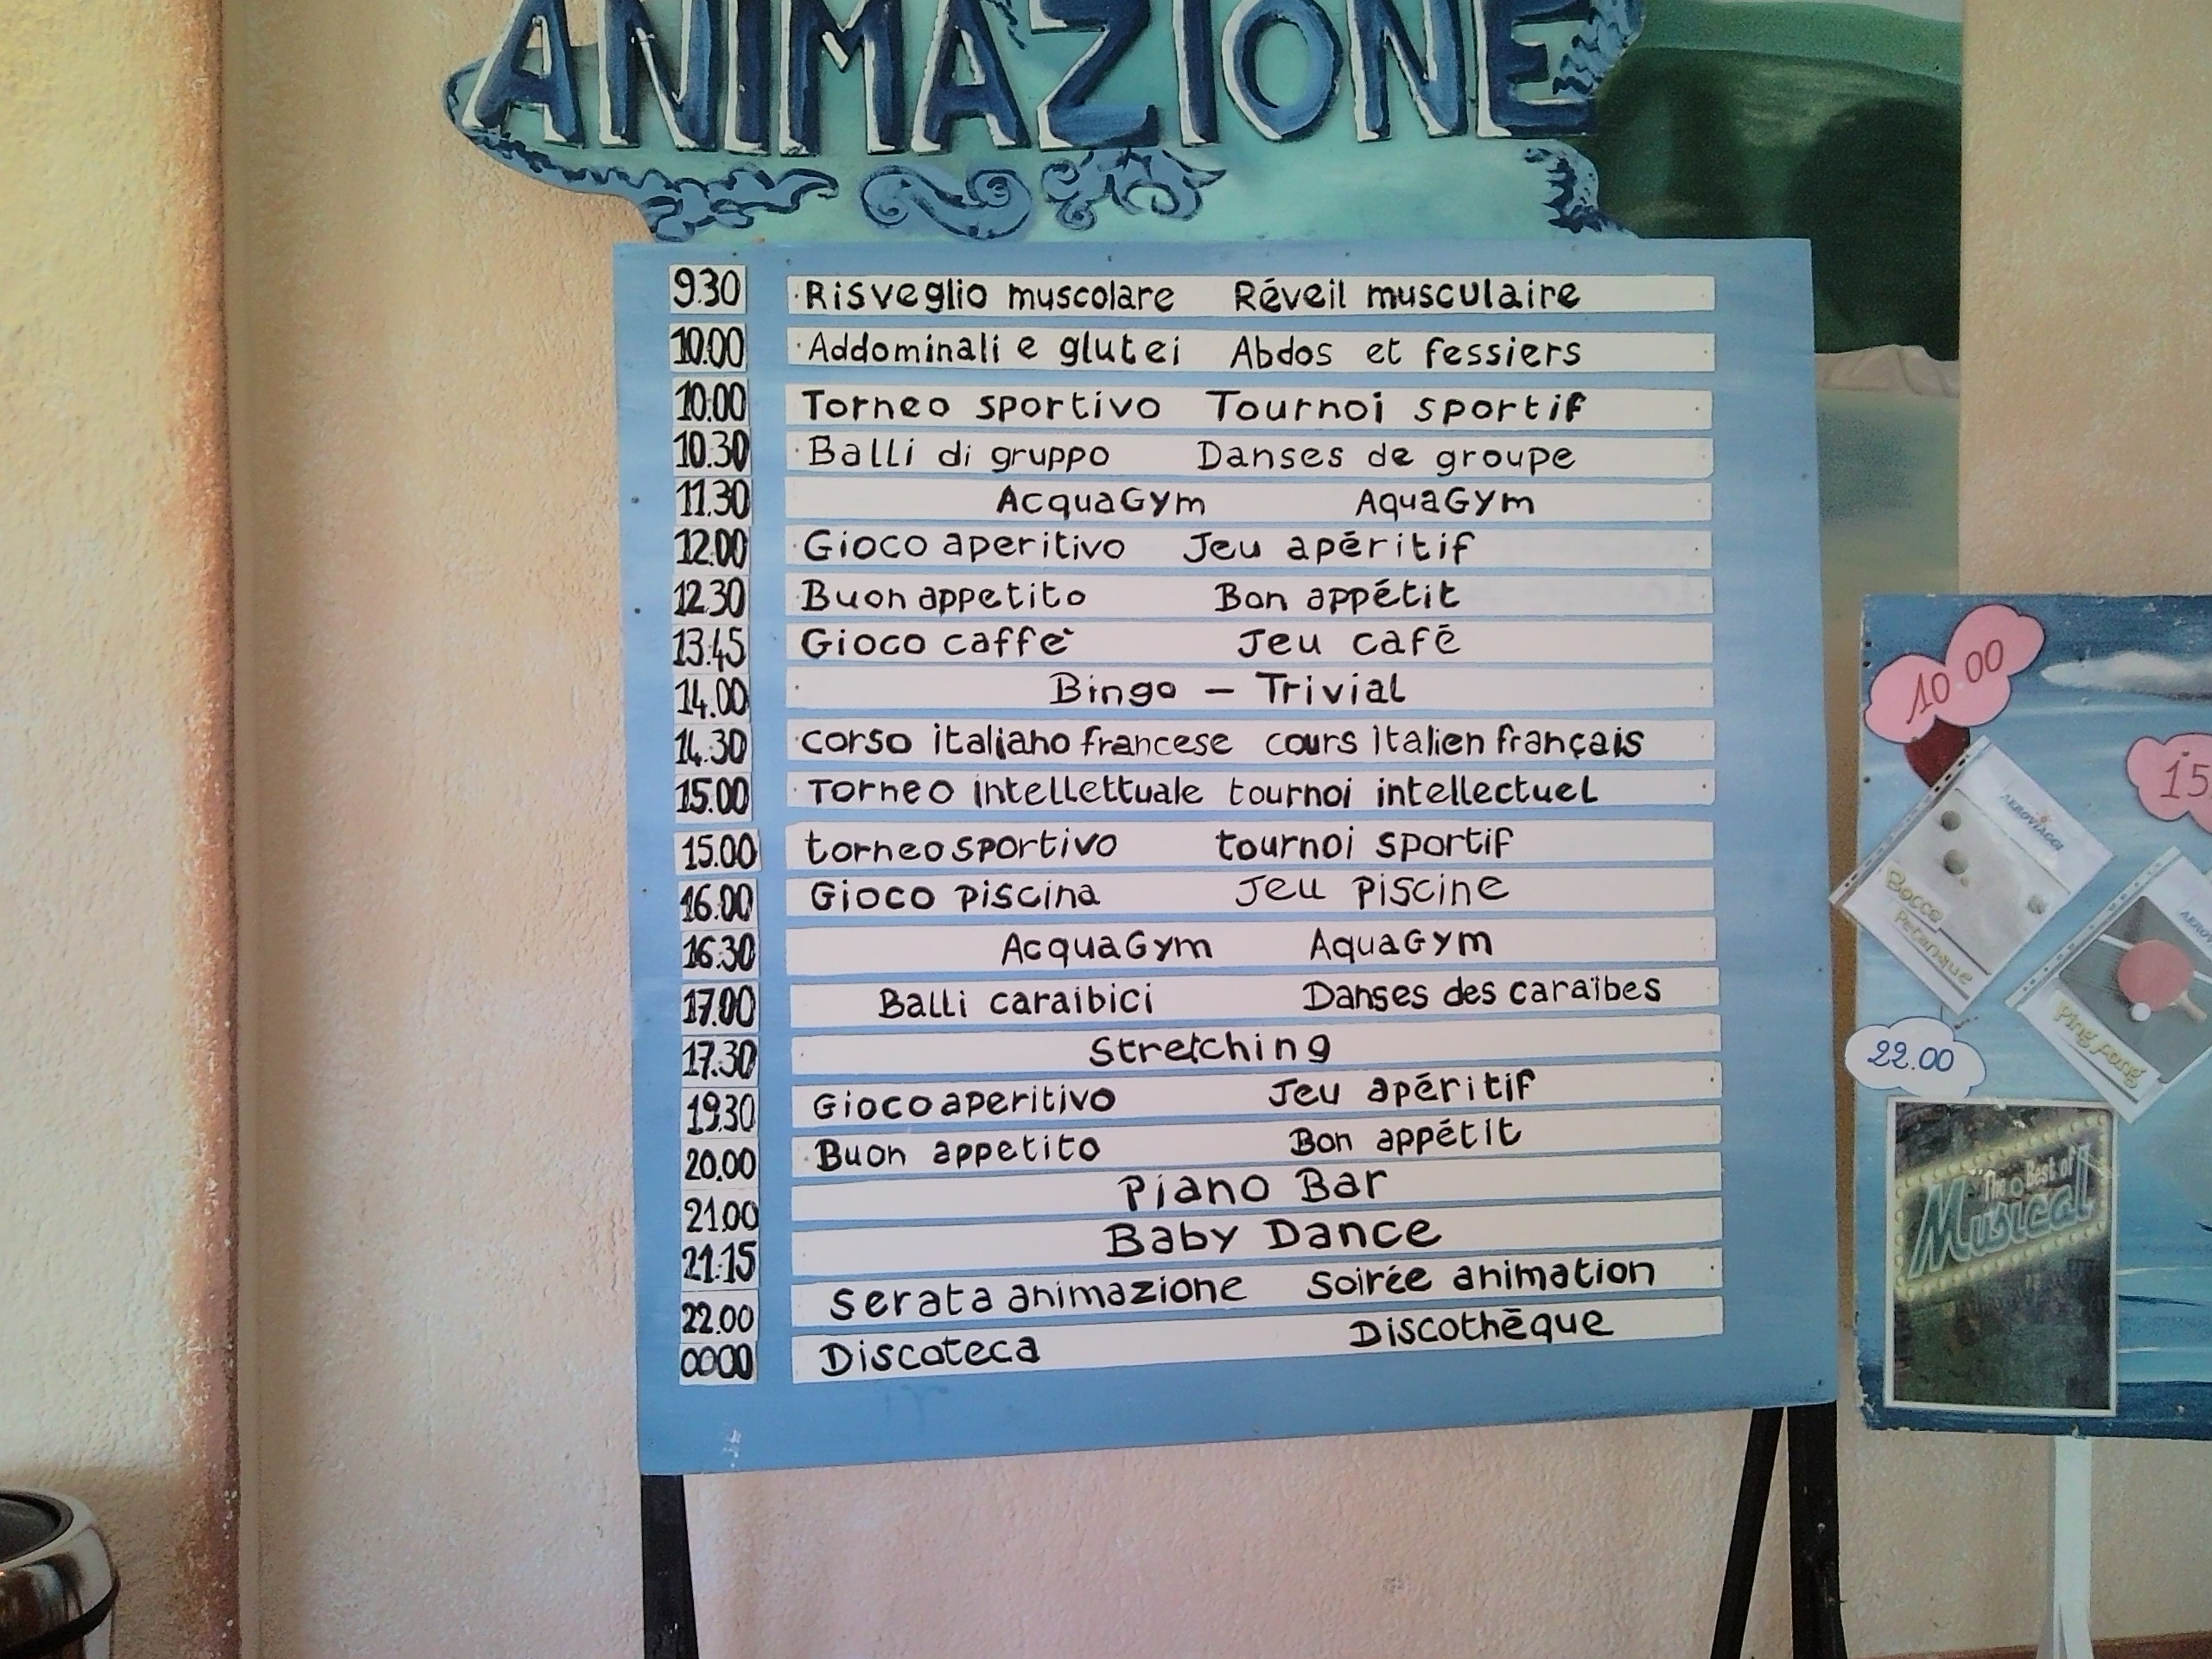 ANIMAZIONE
9.30 Risveglio muscolare Réveil musculaire
10.00 Addominali e glutei Abdos et fessiers
10.00 Torneo sportivo Tournoi sportif
10.30 Balli di gruppo Danses de groupe
11.30 AcquaGym AquaGym
12.00 Gioco aperitivo Jeu apéritif
12.30 Buon appetito Bon appétit
13.45 Gioco caffe` Jeu café
14.00 Bingo - Trivial
14.30 corso italiano francese cours italien français
15.00 Torneo intellettuale tournoi intellectuel
15.00 torneo sportivo tournoi sportif
16.00 Gioco piscina Jeu piscine
16.30 AcquaGym AquaGym
17.00 Balli caraibici Danses des caraïbes
17.30 Stretching
19.30 Gioco aperitivo Jeu apéritif
20.00 Buon appetito Bon appétit
21.00 Piano Bar
21.15 Baby Dance
22.00 Serata animazione Soirée animation
0000 Discoteca Discothèque
10.00
15
AEROVIAGGI
Bocce
Petanque
Ping pong
22.00
The Best of
Musical